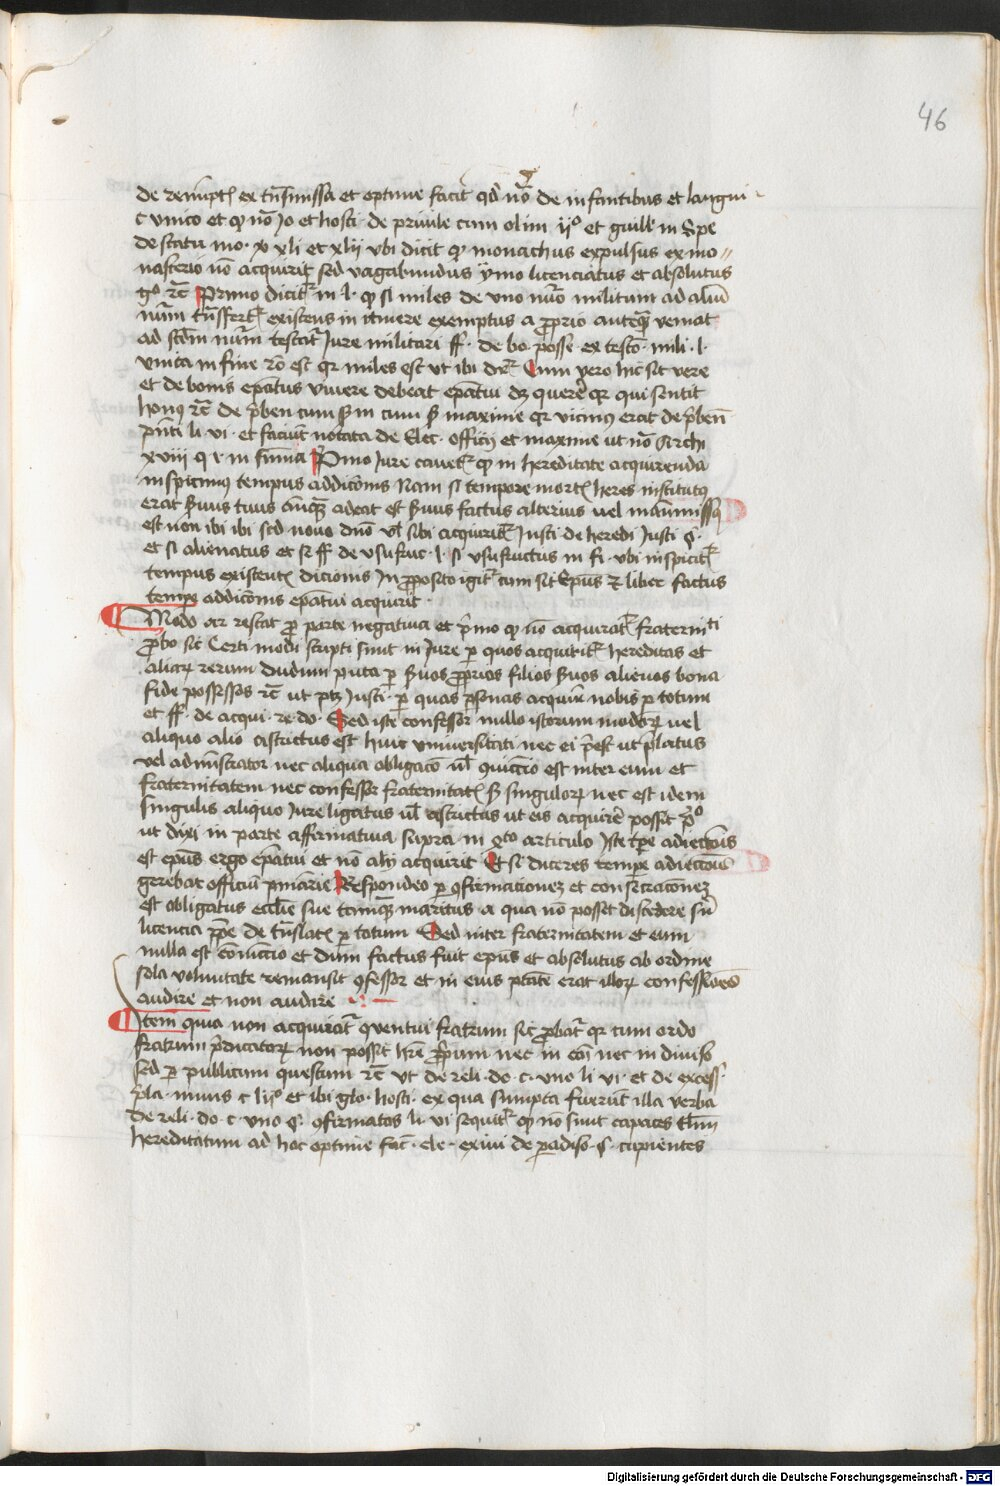 46
de rempt ex tnsmissa et optime facit qd no de infantibus et langui
c unico et qp no Jo et hosti de privile cum olim ijº et guill in Spe
de statu mo · xli et xlij vbi dicit qp monachus expulsus ex mo
nasterio nō acquirit sed vagabundus ymo licenciatus et absolutus
gº rc Primo dicitr in l · qp si miles de uno nūo militum ad aliū
nūm tnsfert existens in itinere exemptus a proprio anteqz veniat
ad scdm nūm testat Jure militari ff · de bo · posse ex testo mili · l ·
unica in fine ro est qr miles est ut ibi dr Cum vero hic sit vere
et de bonis epatus vivere debeat epatui dz quere qr qui sentit
honus rc de pben cum in cum maxime qr vicinus erat de pben
pnti li vi · et faciut notata de Elec · officij et maxime ut no Archi
xviii q 1 in summa Pmo Jure cavet qp in hereditate acquirenda
inspicimus tempus addicionis Nam si tempore mortis heres institutus
erat suus tuus anqz adeat est suus factus alterius vel manumissus
est non ibi ibi sed novo dno vl sibi acquirit Justi de heredi Justi §
et si alienatus et si ff de usufruc · l · si usufructus in fi · vbi inspicit
tempus existentis dicionis In proposito igit cum sit Epus et liber factus
tempe addicionis epatui acquirit ·
Modo ar restat pro parte negativa et pmo qp no acquirat fraterniti
probo sic Certi modi scripti sunt in Jure per quos acquirit hereditas et
aliarum rerum dudum puta per suos proprios filios suos alienos bona
fide possessos rc ut ptz Justi · per quas psonas acquir nobis p totum
et ff · de acqui · re · do · Sed iste confessor nullo istorum modorum vel
aliquo alio astrictus est huic universitati nec ei prest ut platus
vel administrator nec aliqua obligaco vl coniunctio est inter eum et
fraternitatem nec confessor fraternitatis sed singulorum nec est idem
singulis aliquo Jure ligatus vl astrictus ut eis acquire possit
ut dixi in parte affirmativa supra in 4to articulo Iste tpe adiectionis
est epus ergo epatui et no alij acquirit Et si diceres tempe adiectionis
gerebat officiu pmarie Respondeo per confirmacionez et consecracionez
est obligatus ecclie sue tamqz maritus a qua no posset discedere sn
licencia ppe de tnslatis p totum Sed inter fraternitatem et eum
nulla est coniunctio et dum factus fuit epus et absolutus ab ordine
sola voluntate remansit confessor et in eius ptate erat illorum confessiones
audire et non audire
Item quia non acquirat conventui fratrum sic probat qr cum ordo
fratrum pdicatorum non possit hre propium nec in coi nec in diviso
sed per publicum questum rc ut de reli · do · c · uno li vi · et de excess
pla · nimis c lijº et ibi glo · hosti · ex qua sumpta fuerut illa verba
de reli · do · c · uno § · confirmatas li · vi sequit qp no sunt capaces
hereditatum ad hoc optime fac · cle · exivi de paradiso · § · cupientes
Digitalisierung gefördert durch die Deutsche Forschungsgemeinschaft - DFG